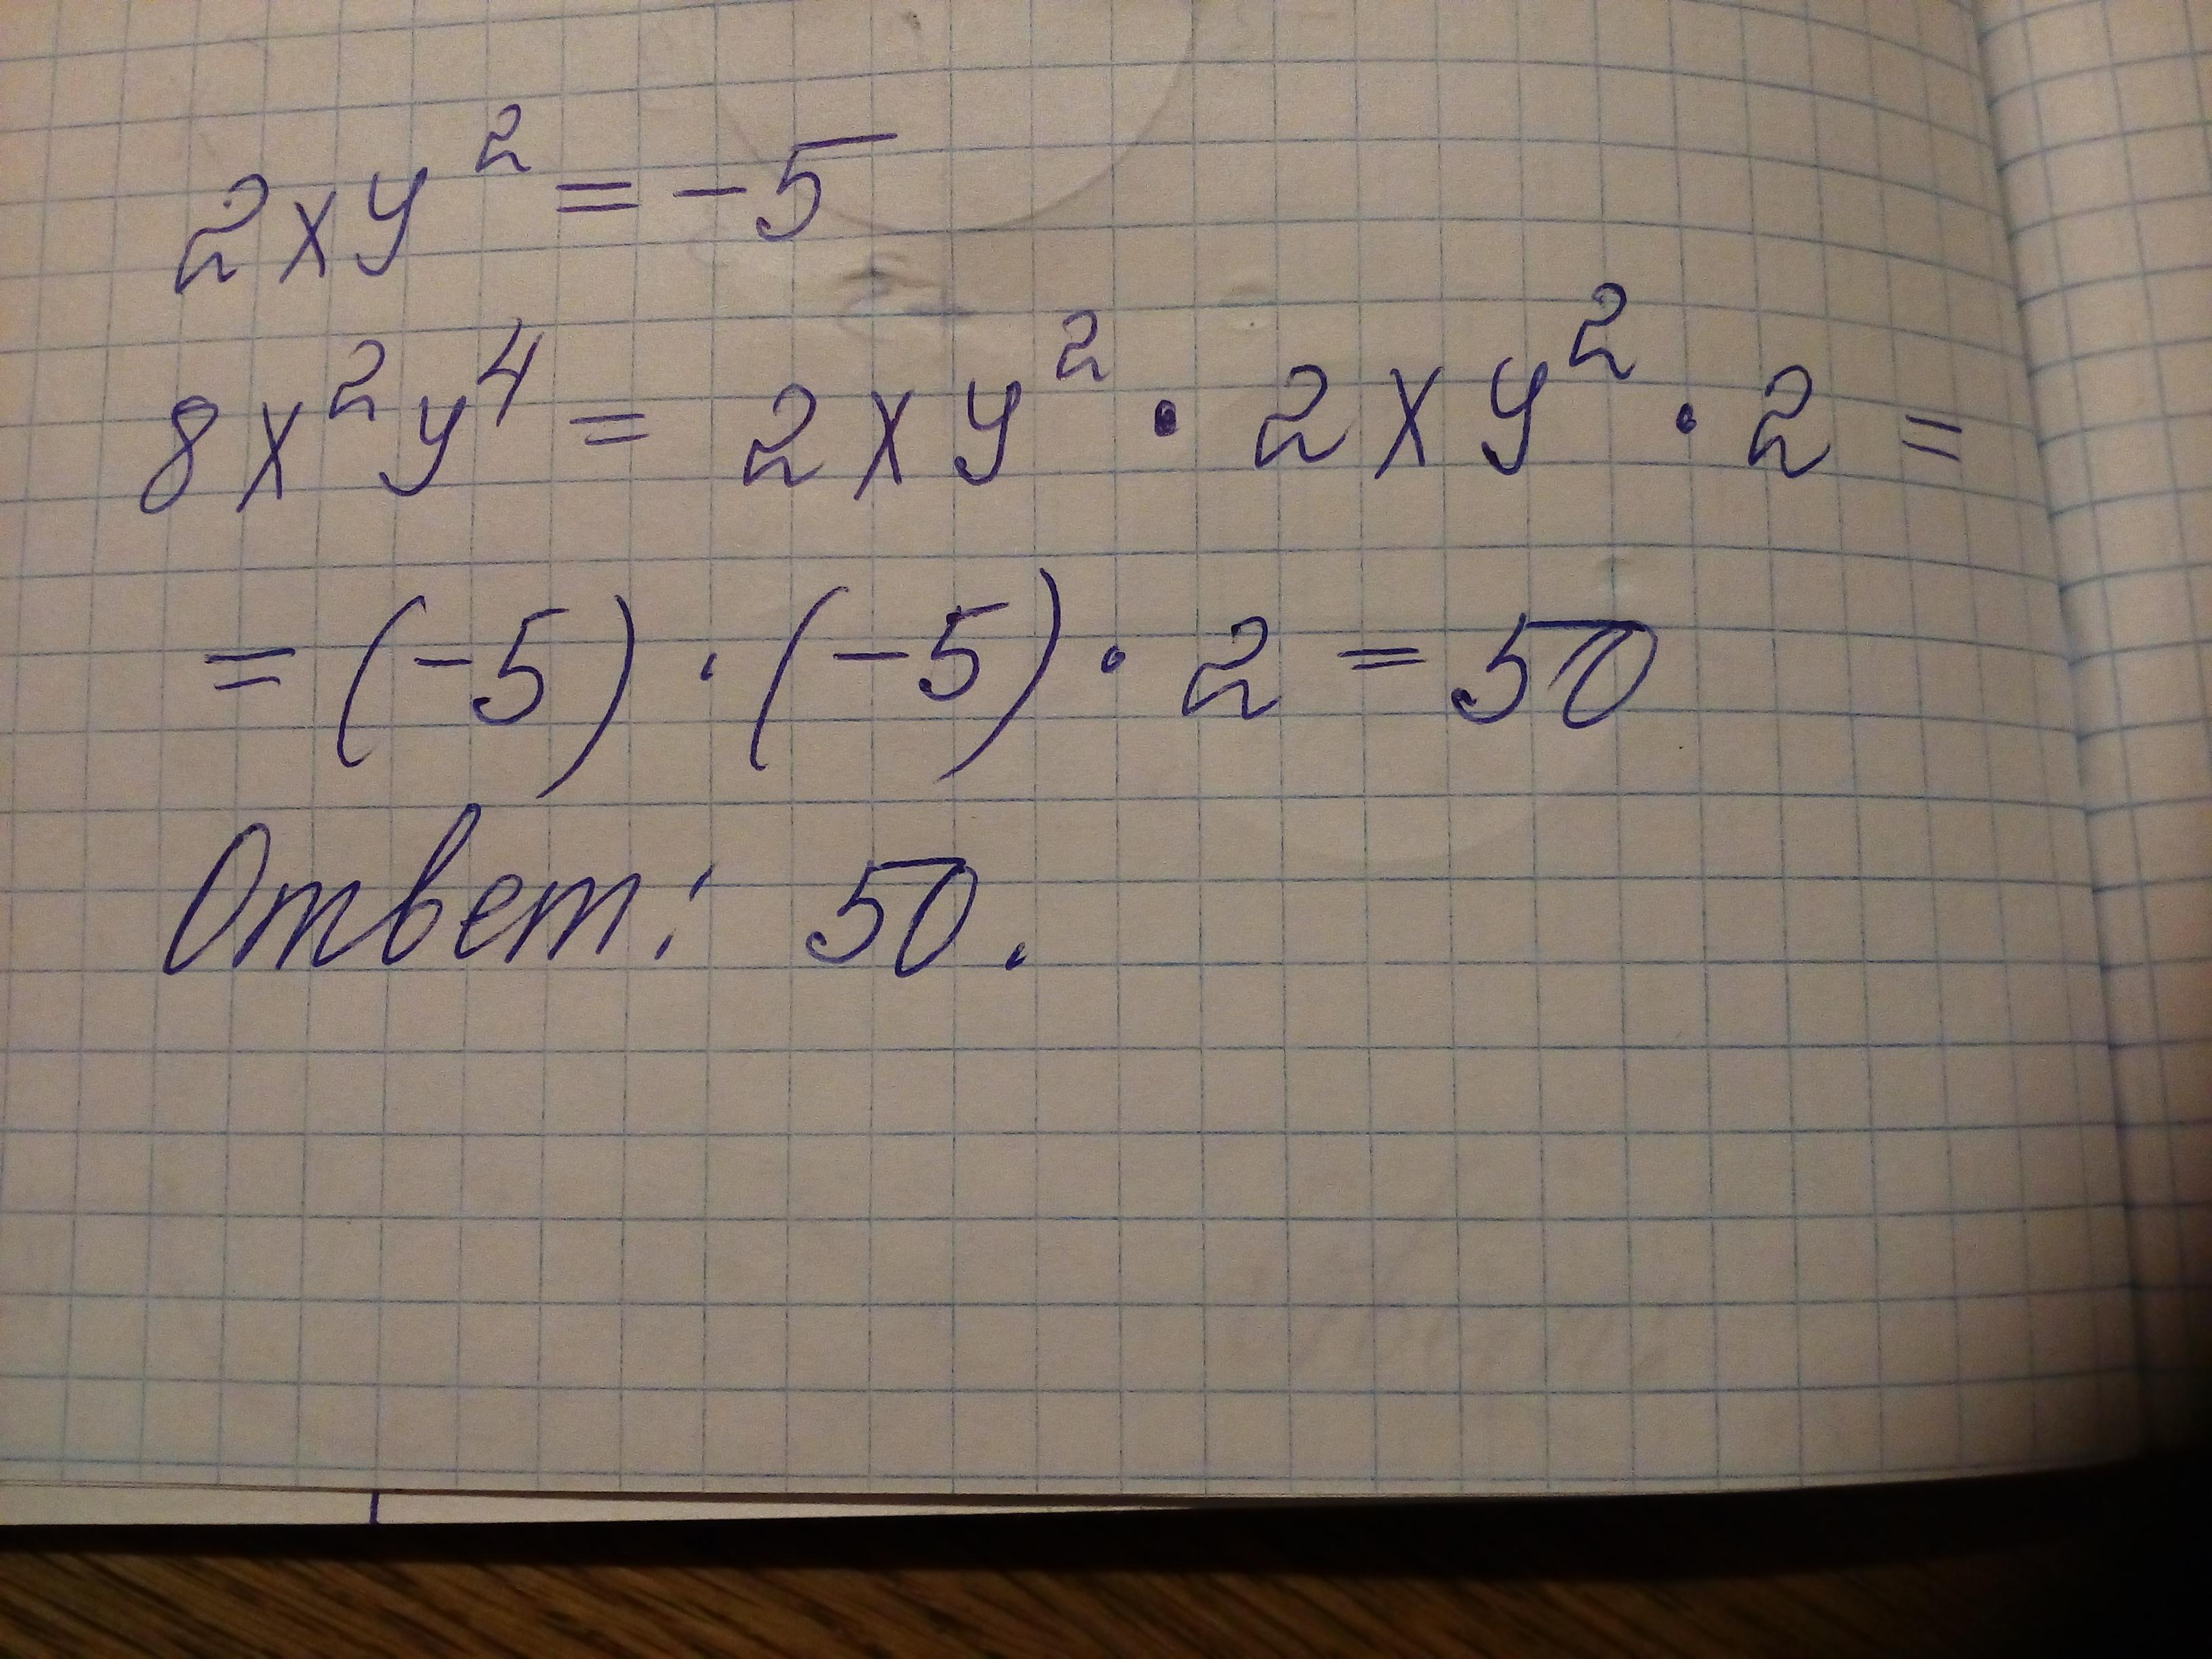 2xy² = -5
8x²y⁴ = 2xy² · 2xy² · 2 =
= (-5) · (-5) · 2 = 50
Ответ: 50.